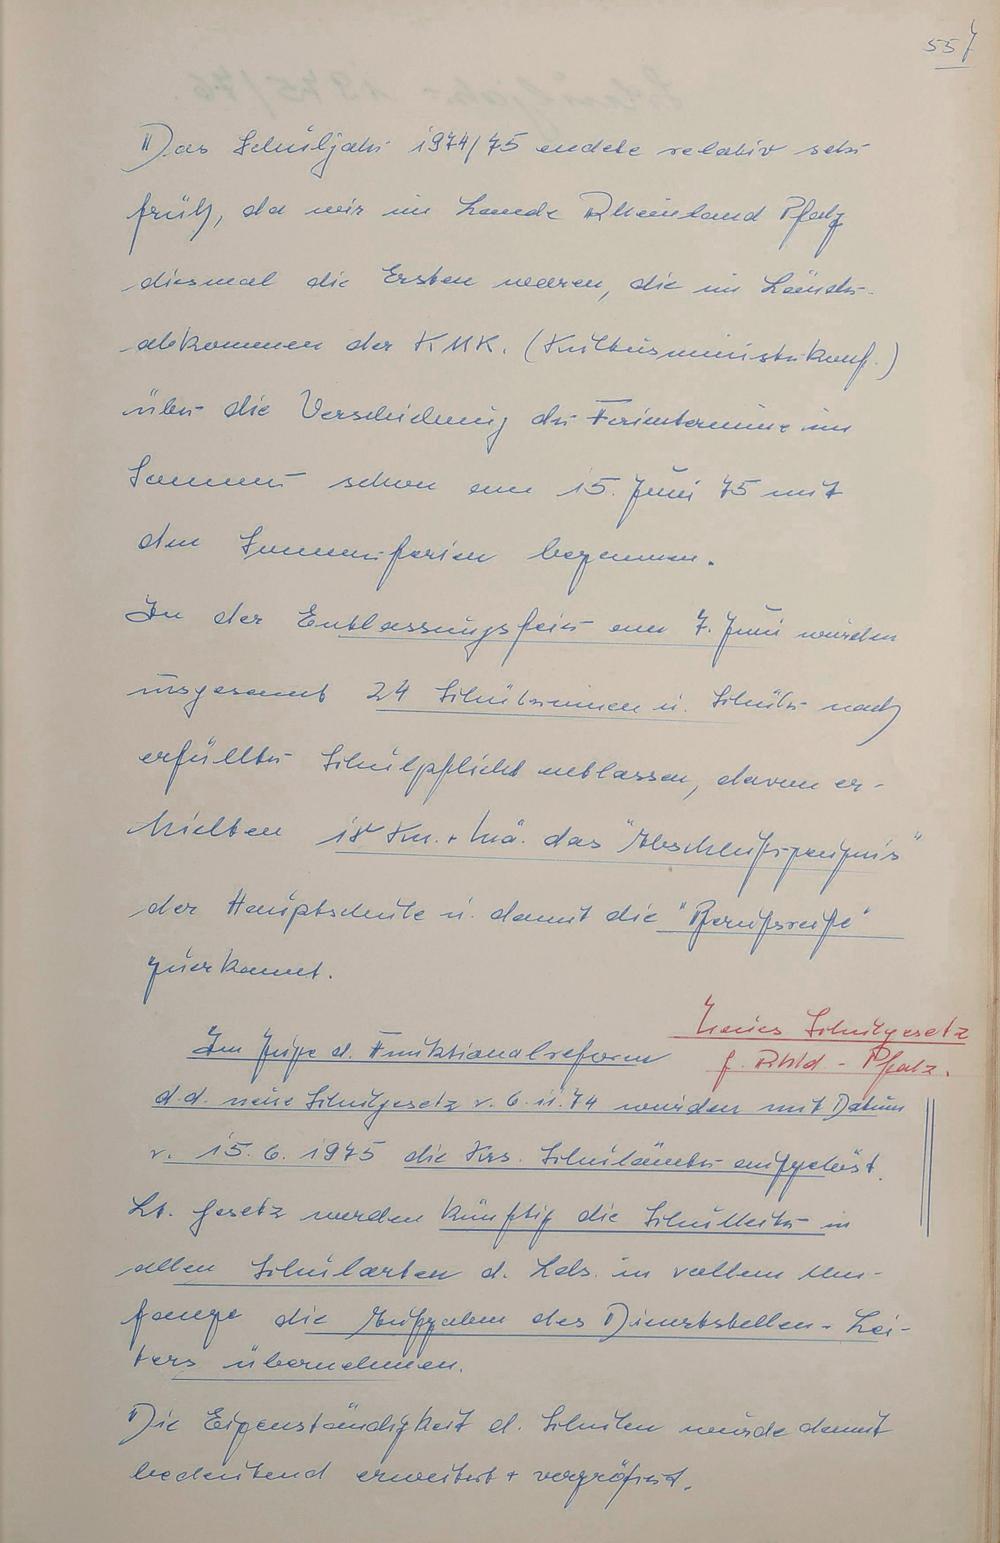 557
Das Schuljahr 1974/75 endete relativ sehr
früh, da wir im Lande Rheinland Pfalz
diesmal die Ersten waren, die im Länder-
abkommen der KMK. (Kultusministerkonf.)
über die Verschiebung der Ferientermine im
Sommer schon am 15. Juni 75 mit
den Sommerferien begannen.
In der Entlassungsfeier am 7. Juni wurden
insgesamt 24 Schülerinnen u. Schüler nach
erfüllter Schulpflicht entlassen, davon er-
hielten 18 Kn. + Mä. das "Abschlußzeugnis"
der Hauptschule u. damit die "Berufsreife"
zuerkannt.
Neues Schulgesetz
f. Rhld - Pfalz.
Im Zuge d. Funktionalreform
d. d. neue Schulgesetz v. 6.11.74 wurden mit Datum
v. 15. 6. 1975 die Krs. Schulämter aufgelöst.
Lt. Gesetz werden künftig die Schulleiter in
allen Schularten d. Lds. in vollem Um-
fange die Aufgaben des Dienststellen-Lei-
ters übernehmen.
Die Eigenständigkeit d. Schulen wurde damit
bedeutend erweitert + vergrößert.